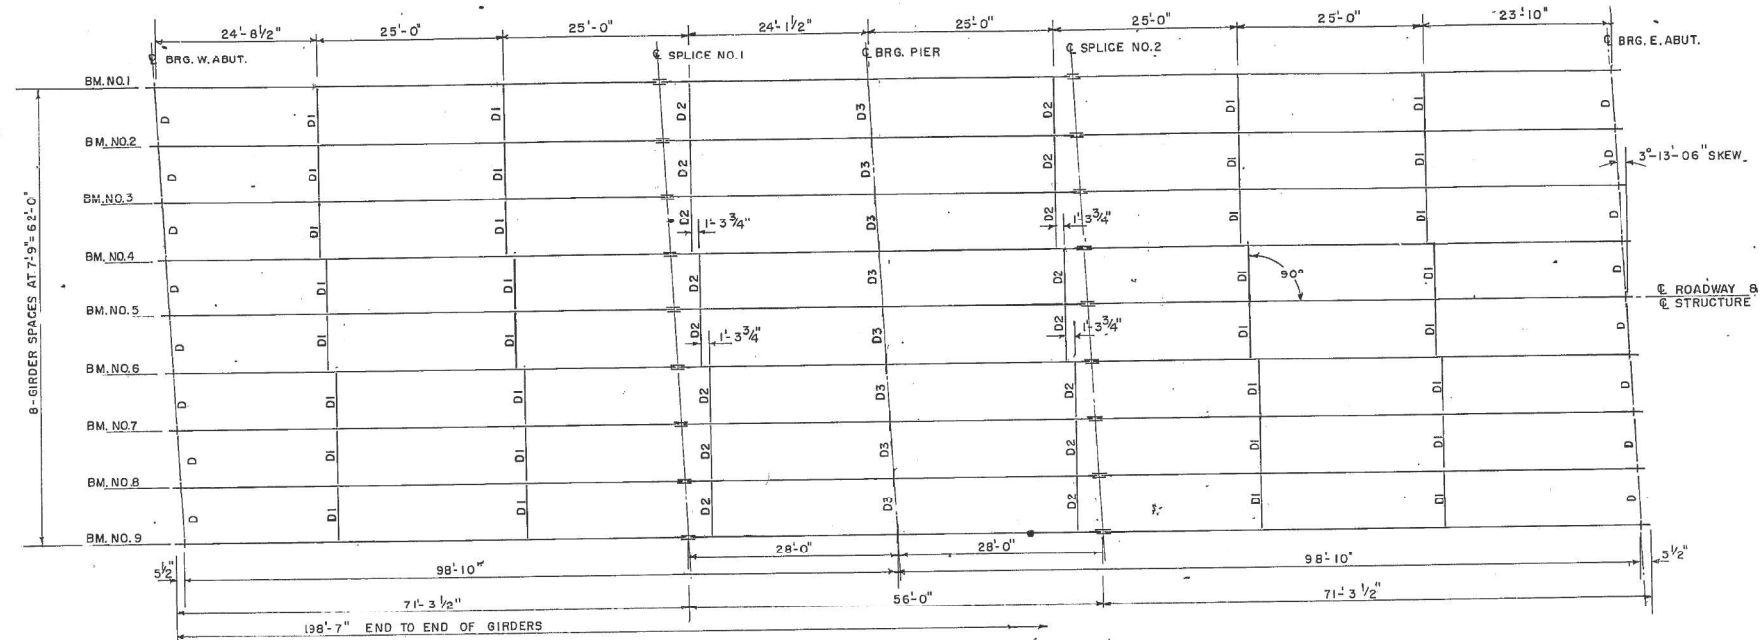 24'-8 1/2" 25'-0" 25'-0" 24'-1 1/2" 25'-0" 25'-0" 25'-0" 23'-10"
℄ BRG. W. ABUT. ℄ SPLICE NO.1 ℄ BRG. PIER ℄ SPLICE NO.2 ℄ BRG. E. ABUT.
BM. NO.1
D D1 D1 D2 D3 D2 D1 D1 D
BM. NO.2
D D1 D1 D2 D3 D2 D1 D1 D 3°-13'-06" SKEW
BM. NO.3
D D1 D1 D2 1'-3 3/4" D3 D2 1'-3 3/4" D1 D1 D
BM. NO.4
D D1 D1 D2 D3 D2 D1 90° D1 D
8-GIRDER SPACES AT 7'-9" = 62'-0"
℄ ROADWAY &
℄ STRUCTURE
BM. NO.5
D D1 D1 D2 1'-3 3/4" D3 D2 1'-3 3/4" D1 D1 D
BM. NO.6
D D1 D1 D2 D3 D2 D1 D1 D
BM. NO.7
D D1 D1 D2 D3 D2 D1 D1 D
BM. NO.8
D D1 D1 D2 D3 D2 D1 D1 D
BM. NO.9
28'-0" 28'-0"
5 1/2" 98'-10" 98'-10" 5 1/2"
71'-3 1/2" 56'-0" 71'-3 1/2"
198'-7" END TO END OF GIRDERS